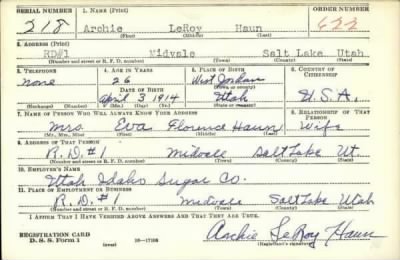 SERIAL NUMBER 1. NAME (Print) ORDER NUMBER
218 Archie LeRoy Haun 622
(First) (Middle) (Last)
2. ADDRESS (Print)
RD#1 Midvale Salt Lake Utah
(Number and street or R. F. D. number) (Town) (County) (State)
3. TELEPHONE 4. AGE IN YEARS 5. PLACE OF BIRTH 6. COUNTRY OF CITIZENSHIP
none 26 West Jordan
DATE OF BIRTH (Town or county)
April 3 1914 Utah U.S.A.
(Exchange) (Number) (Mo.) (Day) (Yr.) (State or country)
7. NAME OF PERSON WHO WILL ALWAYS KNOW YOUR ADDRESS 8. RELATIONSHIP OF THAT PERSON
Mrs. Eva Florence Haun Wife
(Mr., Mrs., Miss) (First) (Middle) (Last)
9. ADDRESS OF THAT PERSON
R.D. #1 Midvale Salt Lake Ut.
(Number and street or R. F. D. number) (Town) (County) (State)
10. EMPLOYER'S NAME
Utah Idaho Sugar Co.
11. PLACE OF EMPLOYMENT OR BUSINESS
R.D. #1 Midvale Salt Lake Utah
(Number and street or R. F. D. number) (Town) (County) (State)
I AFFIRM THAT I HAVE VERIFIED ABOVE ANSWERS AND THAT THEY ARE TRUE.
REGISTRATION CARD
D. S. S. Form 1 16-17105 Archie LeRoy Haun
(Registrant's signature)